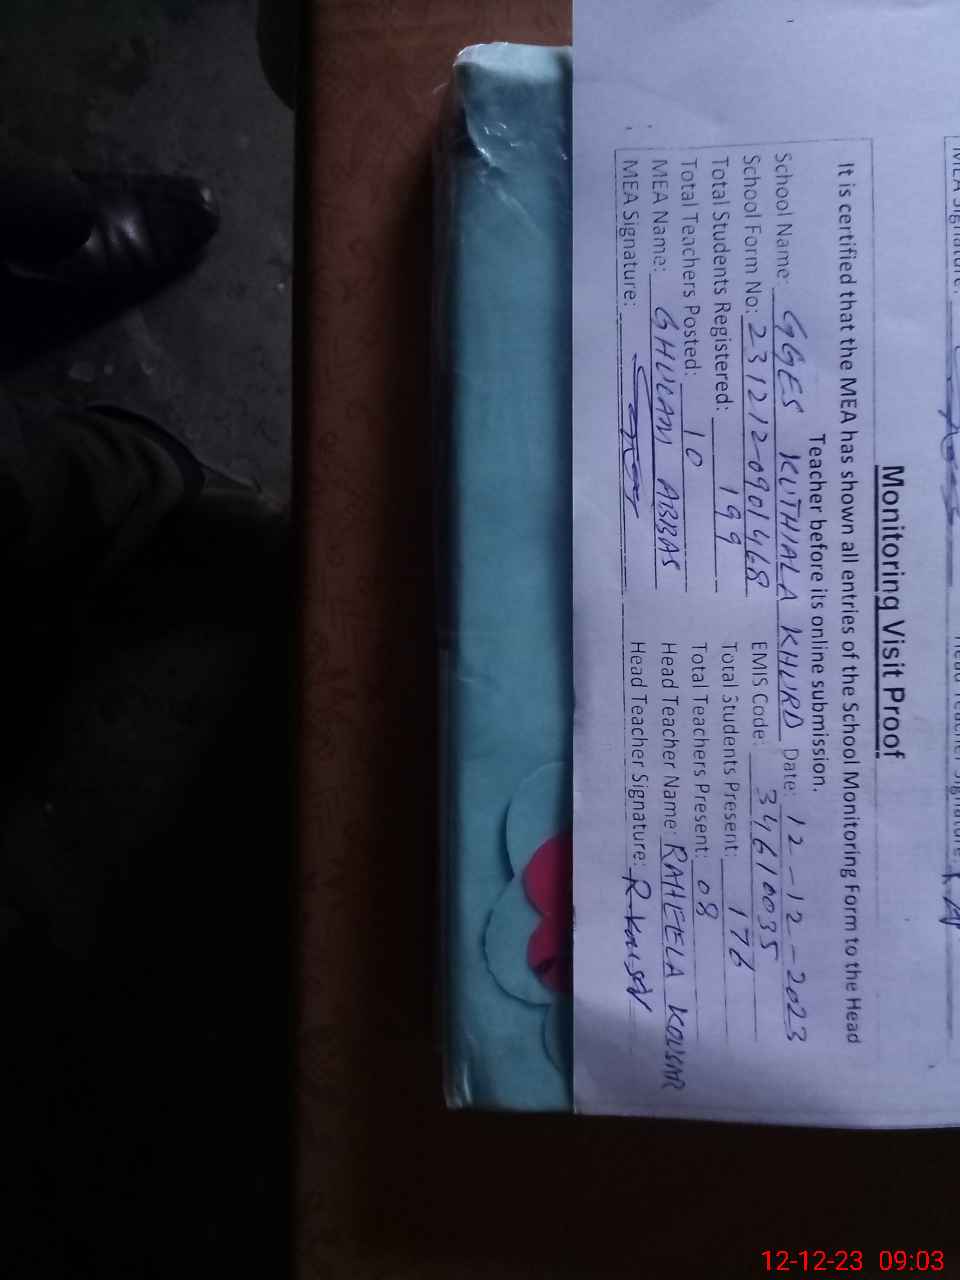 MEA Signature: Head Teacher Signature:
Monitoring Visit Proof
It is certified that the MEA has shown all entries of the School Monitoring Form to the Head
Teacher before its online submission.
School Name: GGES KUTHIALA KHURD Date: 12-12-2023
School Form No: 231212-0901468 EMIS Code: 34610035
Total Students Registered: 199 Total Students Present: 176
Total Teachers Posted: 10 Total Teachers Present: 08
MEA Name: GHULAM ABBAS Head Teacher Name: RAHEELA KOUSAR
MEA Signature: Head Teacher Signature: R.Kousar
12-12-23 09:03